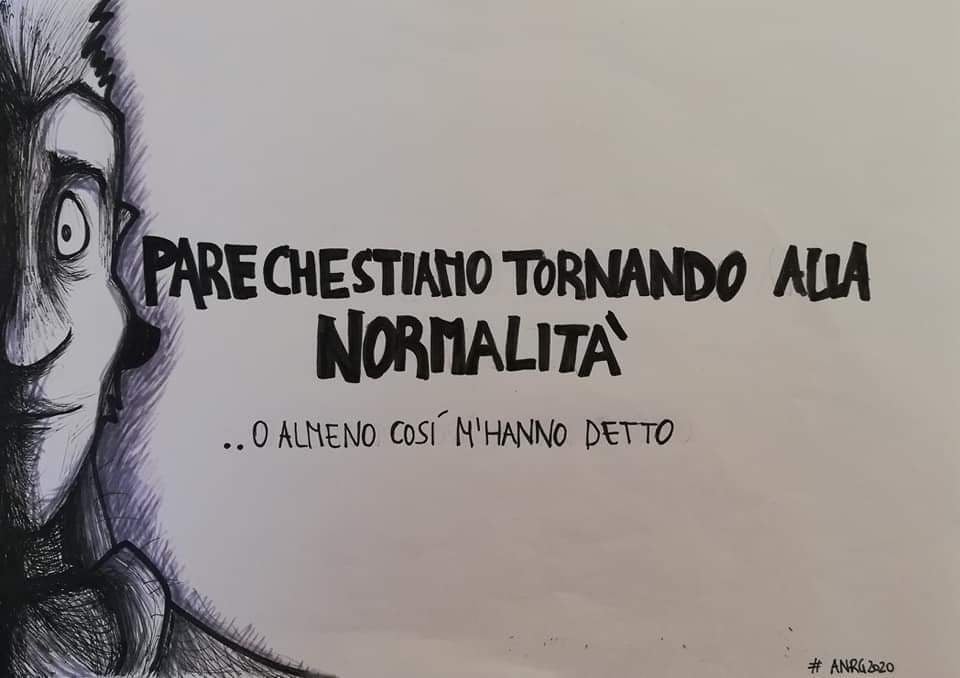 PARE CHE STIAMO TORNANDO ALLA
NORMALITÀ
..O ALMENO COSÍ M'HANNO DETTO
# ANRG2020